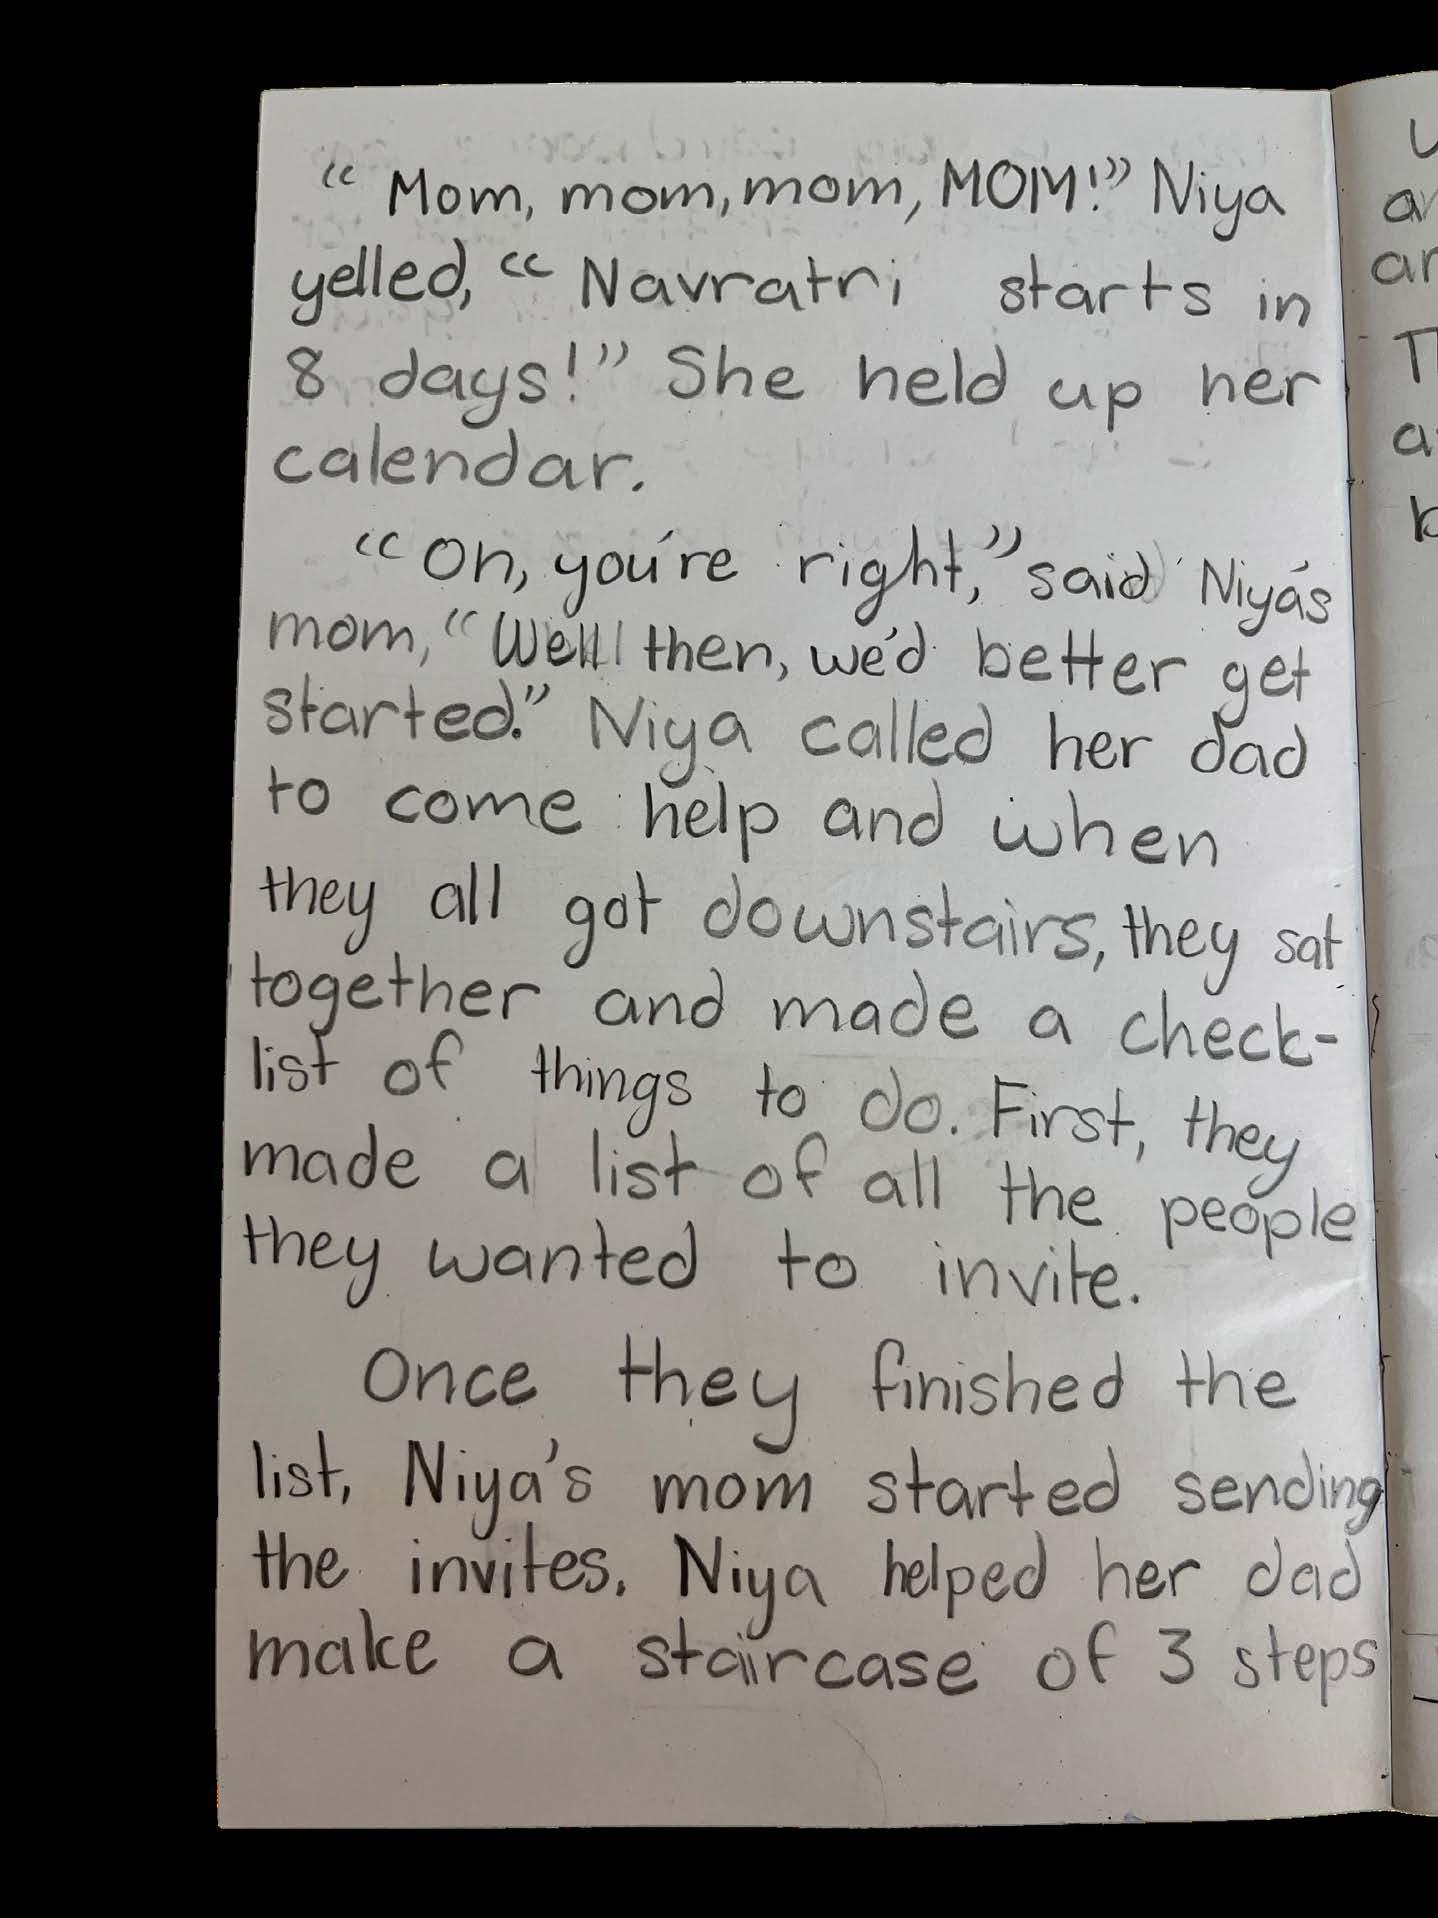 “Mom, mom, mom, MOM!” Niya
yelled, “Navratri starts in
8 days!” She held up her
calendar.
“Oh, you're right,” said Niya's
mom, “Well then, we'd better get
started.” Niya called her dad
to come help and when
they all got downstairs, they sat
together and made a check-
list of things to do. First, they
made a list of all the people
they wanted to invite.
Once they finished the
list, Niya's mom started sending
the invites. Niya helped her dad
make a staircase of 3 steps